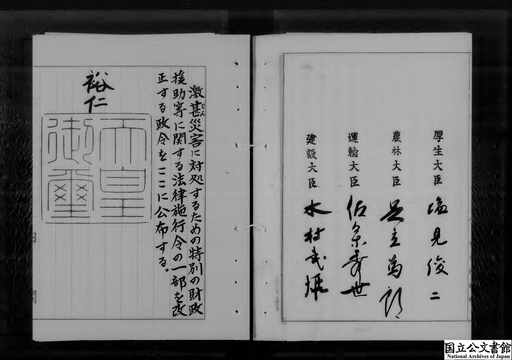 厚生大臣 塩見俊二
農林大臣 足立篤郎
運輸大臣 佐々木秀世
建設大臣 木村武雄
激甚災害に対処するための特別の財政
援助等に関する法律施行令の一部を改
正する政令をここに公布する。
裕仁
天皇
御璽
国立公文書館
National Archives of Japan